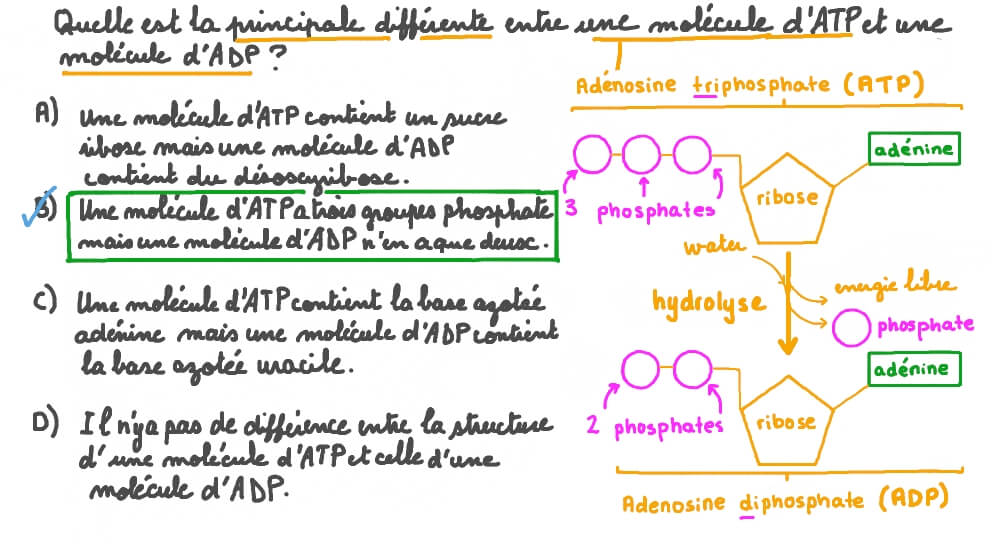 Quelle est la principale différente entre une molécule d'ATP et une
molécule d'ADP ?
A) Une molécule d'ATP contient un sucre
ribose mais une molécule d'ADP
contient du désoxyribose.
B) Une molécule d'ATP a trois groupes phosphate
mais une molécule d'ADP n'en a que deux.
C) Une molécule d'ATP contient la base azotée
adénine mais une molécule d'ADP contient
la base azotée uracile.
D) Il n'y a pas de différence entre la structure
d'une molécule d'ATP et celle d'une
molécule d'ADP.
Adénosine triphosphate (ATP)
adénine
ribose
3 phosphates
water
hydrolyse
energie libre
phosphate
adénine
ribose
2 phosphates
Adenosine diphosphate (ADP)